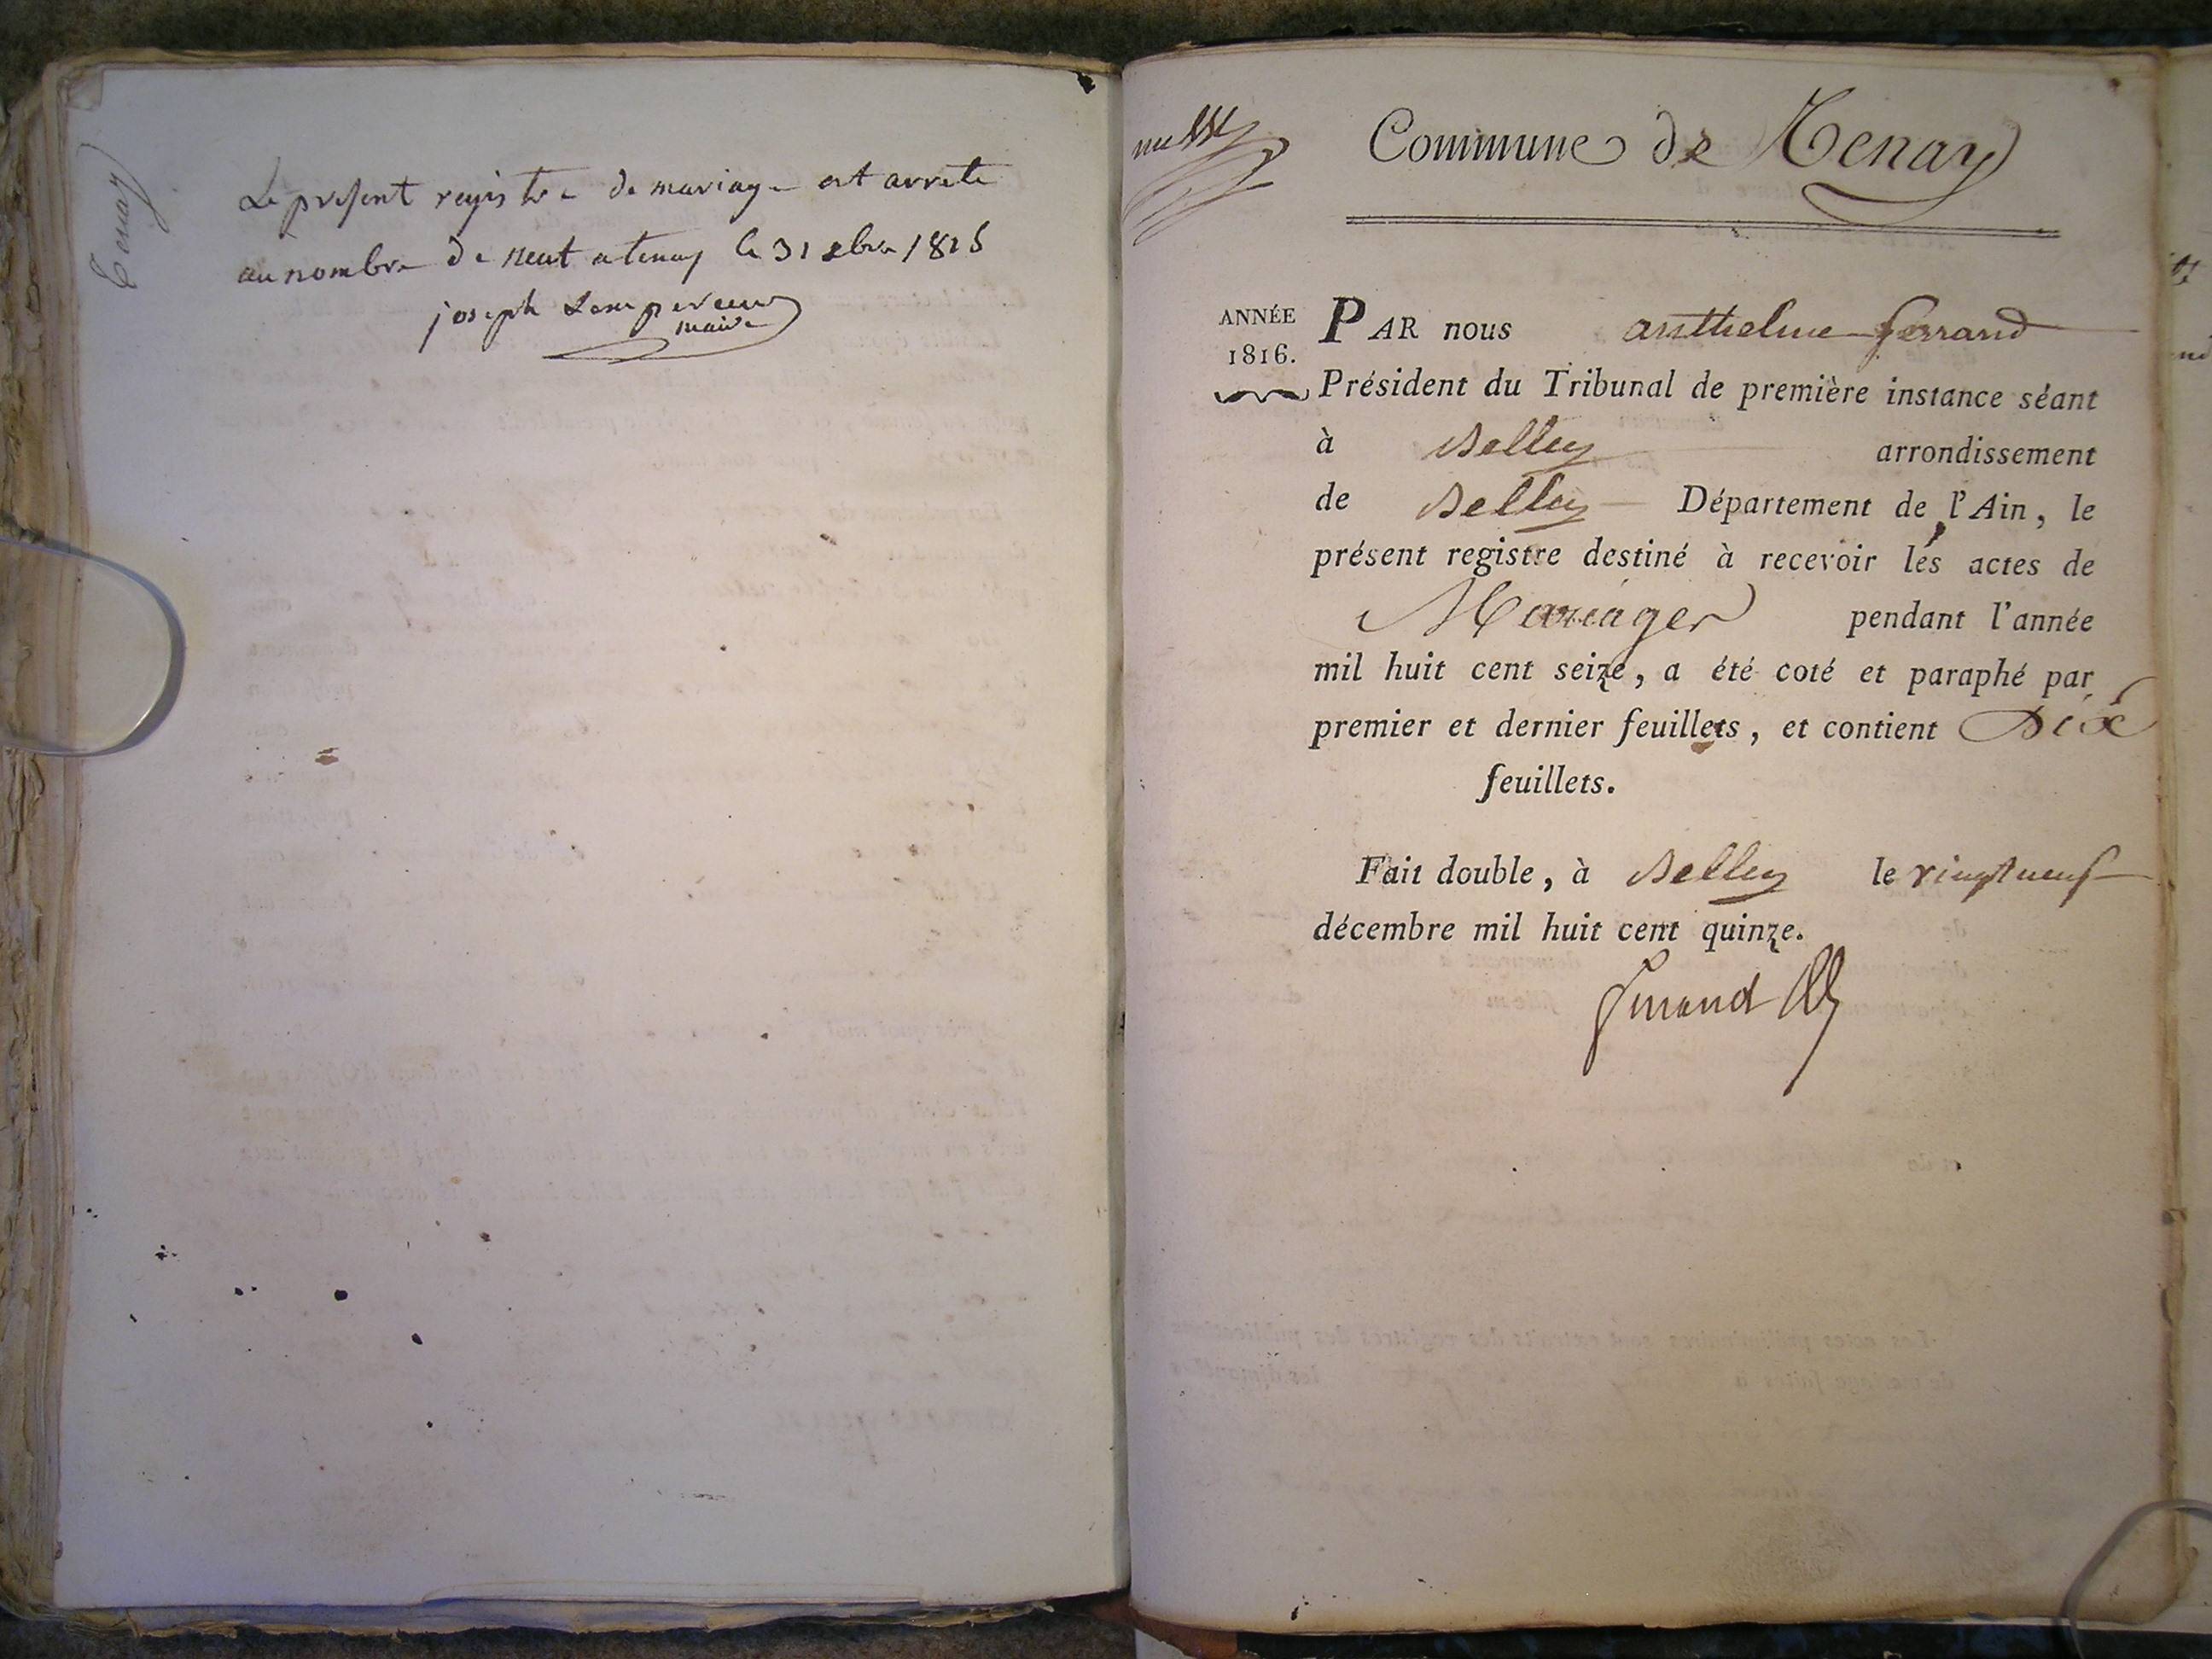 Tenay
Le present registre de mariage est arrete
au nombre de neuf a tenay le 31 xbre 1815
joseph Lempereur
maire
Commune de Tenay
ANNÉE
1816.
PAR nous anthelme ferrand
Président du Tribunal de première instance séant
à Belley arrondissement
de Belley Département de l'Ain, le
présent registre destiné à recevoir les actes de
Mariages pendant l'année
mil huit cent seize, a été coté et paraphé par
premier et dernier feuillets, et contient Dix
feuillets.
Fait double, à Belley le vingt neuf
décembre mil huit cent quinze.
ferrand